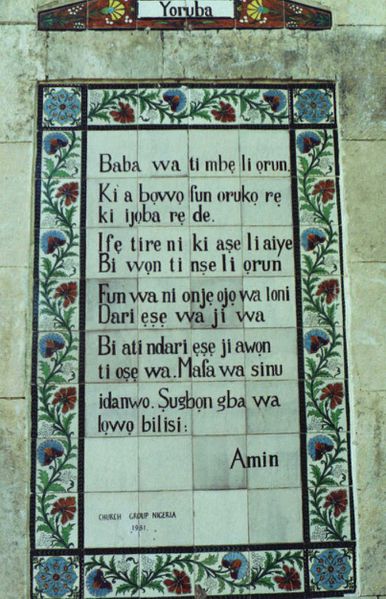 Yoruba
Baba wa ti mbẹ li ọrun.
Ki a bọwọ fun orukọ rẹ
ki ijọba rẹ de.
Ifẹ tire ni ki aṣe li aiye
Bi wọn ti nṣe li ọrun
Fun wa ni onjẹ ojọ wa loni
Dari ẹṣẹ wa ji wa
Bi ati ndari ẹṣẹ ji awọn
ti oṣẹ wa. Maṡa wa sinu
idanwo. Ṣugbọn gba wa
lọwọ bilisi:
Amin
CHURCH GROUP NIGERIA
1981.